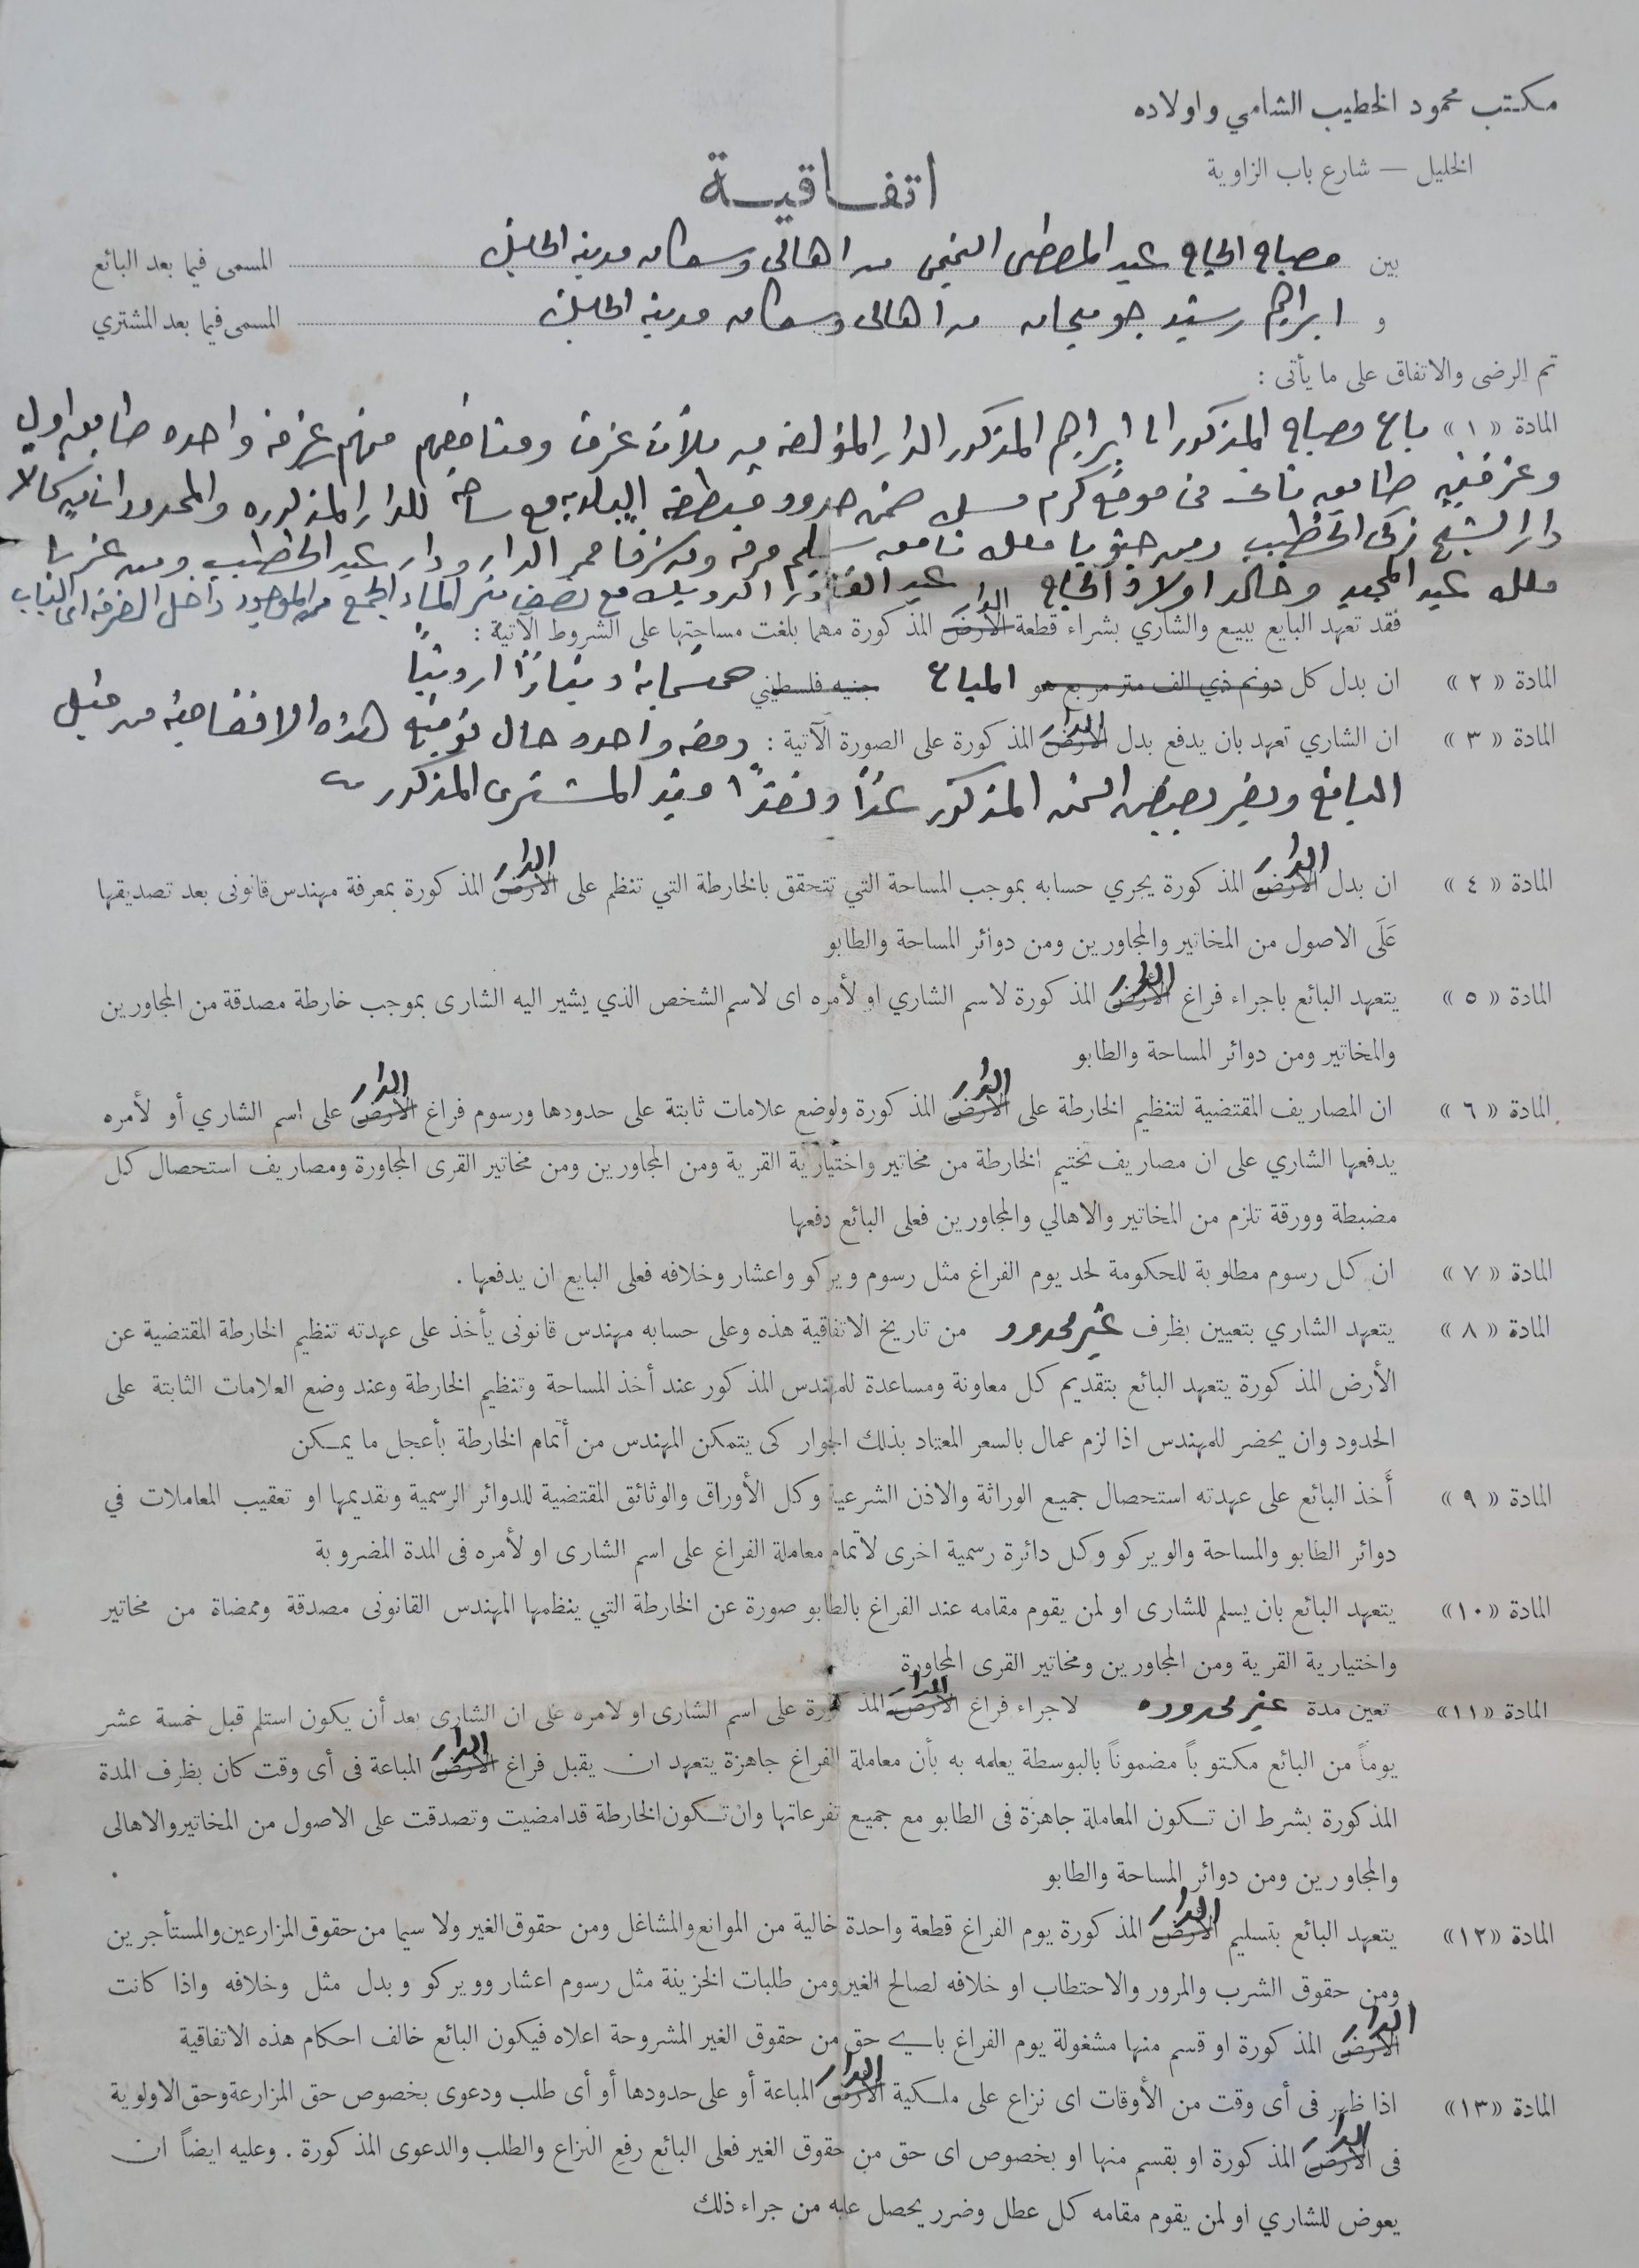 مكتب محمود الخطيب الشامي واولاده
الخليل — شارع باب الزاوية
اتفاقية
بين مصباح الحاج عبد المعطي من اهالي وسكان مدينة الخليل المسمى فيما بعد البائع
و ابراهيم رشيد جويجان من اهالي وسكان مدينة الخليل المسمى فيما بعد المشتري
تم الرضى والاتفاق على ما يأتى :
المادة « ١ » باع مصباح المذكور الى ابراهيم المذكور الدار المؤلفة من ثلاث غرف ومنافعهم منهم غرفة واحده طابق اولي
وغرفتين طابق ثاني في موقع كرم ضمن حدود منطقة البلدية مع ساحة للدار المذكوره والمحدودات
دار الشيخ زكي الخطيب ومن جنوبا ملك وشرقا ممر الدار ودار عبد الخطيب ومن غربا
ملك عبد المجيد وخالد اولاد الحاج عبد القادر مع نصف بئر الماء الموجود داخل الغرفة
فقد تعهد البايع ببيع والشاري بشراء قطعة الأرض الدار المذكورة مهما بلغت مساحتها على الشروط الآتية :
المادة « ٢ » ان بدل كل دونم ذي الف متر مربع هو المباع جنيه فلسطيني خمسماية دينارًا اردنيًا
المادة « ٣ » ان الشاري تعهد بان يدفع بدل الأرض الدار المذكورة على الصورة الآتية : دفعه واحده حال توقيع هذه الاتفاقية من قبل
البائع ويقر بقبض الثمن المذكور عدًا ونقدًا من يد المشتري المذكور
المادة « ٤ » ان بدل الأرض الدار المذكورة يجري حسابه بموجب المساحة التي تتحقق بالخارطة التي تنظم على الأرض الدار المذكورة بمعرفة مهندس قانونى بعد تصديقها
عَلَى الاصول من المخاتير والمجاورين ومن دوائر المساحة والطابو
المادة « ٥ » يتعهد البائع باجراء فراغ الأرض الدار المذكورة لاسم الشاري او لأمره اى لاسم الشخص الذي يشير اليه الشارى بموجب خارطة مصدقة من المجاورين
والمخاتير ومن دوائر المساحة والطابو
المادة « ٦ » ان المصاريف المقتضية لتنظيم الخارطة على الأرض الدار المذكورة ولوضع علامات ثابتة على حدودها ورسوم فراغ الأرض الدار على اسم الشاري أو لأمره
يدفعها الشاري على ان مصاريف تختيم الخارطة من مخاتير واختيارية القرية ومن المجاورين ومن مخاتير القرى المجاورة ومصاريف استحصال كل
مضبطة وورقة تلزم من المخاتير والاهالي والمجاورين فعلى البائع دفعها
المادة « ٧ » ان كل رسوم مطلوبة للحكومة لحد يوم الفراغ مثل رسوم ويركو واعشار وخلافه فعلى البايع ان يدفعها .
المادة « ٨ » يتعهد الشاري بتعيين بظرف غير محدود من تاريخ الاتفاقية هذه وعلى حسابه مهندس قانونى يأخذ على عهدته تنظيم الخارطة المقتضية عن
الأرض المذكورة يتعهد البائع بتقديم كل معاونة ومساعدة للمهندس المذكور عند أخذ المساحة وتنظيم الخارطة وعند وضع العلامات الثابتة على
الحدود وان يحضر للمهندس اذا لزم عمال بالسعر المعتاد بذلك الجوار كى يتمكن المهندس من أتمام الخارطة بأعجل ما يمكن
المادة « ٩ » أَخذ البائع على عهدته استحصال جميع الوراثة والاذن الشرعية وكل الأوراق والوثائق المقتضية للدوائر الرسمية وتقديمها او تعقيب المعاملات في
دوائر الطابو والمساحة والويركو وكل دائرة رسمية اخرى لاتمام معاملة الفراغ على اسم الشارى او لأمره فى المدة المضروبة
المادة «١٠» يتعهد البائع بان يسلم للشارى او لمن يقوم مقامه عند الفراغ بالطابو صورة عن الخارطة التي ينظمها المهندس القانونى مصدقة وممضاة من مخاتير
واختيارية القرية ومن المجاورين ومخاتير القرى المجاورة
المادة «١١» تعين مدة غير محدوده لاجراء فراغ الأرض الدار المذكورة على اسم الشارى او لامره على ان الشارى بعد أن يكون استلم قبل خمسة عشر
يوماً من البائع مكتوباً مضموناً بالبوسطة يعلمه به بأن معاملة الفراغ جاهزة يتعهد ان يقبل فراغ الأرض الدار المباعة فى أى وقت كان بظرف المدة
المذكورة بشرط ان تكون المعاملة جاهزة فى الطابو مع جميع تفرعاتها وان تكون الخارطة قد امضيت وتصدقت على الاصول من المخاتير والاهالى
والمجاورين ومن دوائر المساحة والطابو
المادة «١٢» يتعهد البائع بتسليم الأرض الدار المذكورة يوم الفراغ قطعة واحدة خالية من الموانع والمشاغل ومن حقوق الغير ولا سيما من حقوق المزارعين والمستأجرين
ومن حقوق الشرب والمرور والاحتطاب او خلافه لصالح الغير ومن طلبات الخزينة مثل رسوم اعشار وويركو وبدل مثل وخلافه واذا كانت
الأرض الدار المذكورة او قسم منها مشغولة يوم الفراغ باي حق من حقوق الغير المشروحة اعلاه فيكون البائع خالف احكام هذه الاتفاقية
المادة «١٣» اذا ظهر فى أى وقت من الأوقات اى نزاع على ملكية الأرض الدار المباعة أو على حدودها أو أى طلب ودعوى بخصوص حق المزارعة وحق الاولوية
فى الأرض الدار المذكورة او بقسم منها او بخصوص اى حق من حقوق الغير فعلى البائع رفع النزاع والطلب والدعوى المذكورة . وعليه ايضاً ان
يعوض للشاري او لمن يقوم مقامه كل عطل وضرر يحصل عليه من جراء ذلك